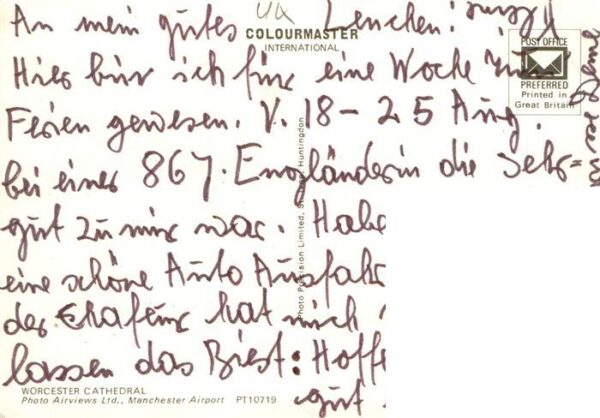 An mein gutes Lenchen!
COLOURMASTER
INTERNATIONAL
POST OFFICE
PREFERRED
Printed in
Great Britain
Hier bin ich für eine Woche in
Ferien gewesen. V. 18 - 25 Aug.
bei einer 86 J. Engländerin die sehr
gut zu mir war. Habe
eine schöne Auto Ausfahr
der Chafeur hat mich
lassen das Biest: Hoffe
gut
Photo Precision Limited, St. Ives, Huntingdon
WORCESTER CATHEDRAL
Photo Airviews Ltd., Manchester Airport PT10719